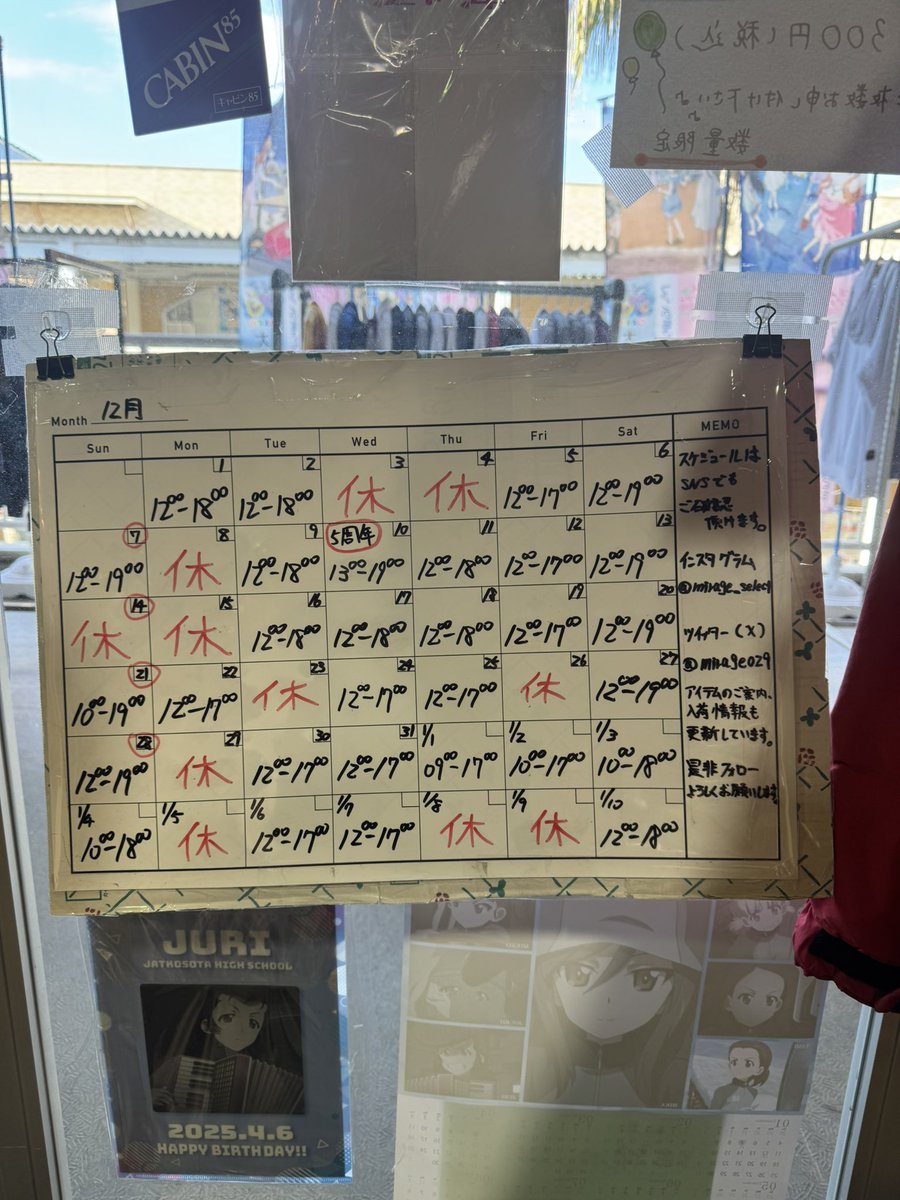 CABIN85
キャビン85
300円(税込)
枚数お申し付け下さい♪
数量限定
Month 12月
Sun Mon Tue Wed Thu Fri Sat MEMO
1 2 3 4 5 6
12:00-18:00 12:00-18:00 休 休 12:00-17:00 12:00-19:00
7 8 9 5周年 10 11 12 13
12:00-19:00 休 12:00-18:00 13:00-19:00 12:00-18:00 12:00-17:00 12:00-19:00
14 15 16 17 18 19 20
休 休 12:00-18:00 12:00-18:00 12:00-18:00 12:00-17:00 12:00-19:00
21 22 23 24 25 26 27
10:00-19:00 12:00-17:00 休 12:00-17:00 12:00-17:00 休 12:00-19:00
28 29 30 31 1/1 1/2 1/3
12:00-19:00 休 12:00-17:00 12:00-17:00 09:00-17:00 10:00-17:00 10:00-18:00
1/4 1/5 1/6 1/7 1/8 1/9 1/10
10:00-18:00 休 12:00-17:00 12:00-17:00 休 休 12:00-18:00
スケジュールは
SNSでも
ご確認
頂けます。
インスタグラム
@mirage_select
ツイッター(X)
@mirage029
アイテムのご案内、
入荷情報も
更新しています。
是非フォロー
よろしくお願いします。
JURI
JATKOSOTA HIGH SCHOOL
2025.4.6
HAPPY BIRTHDAY!!